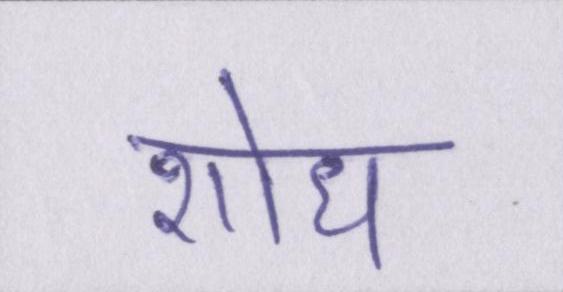 शोध